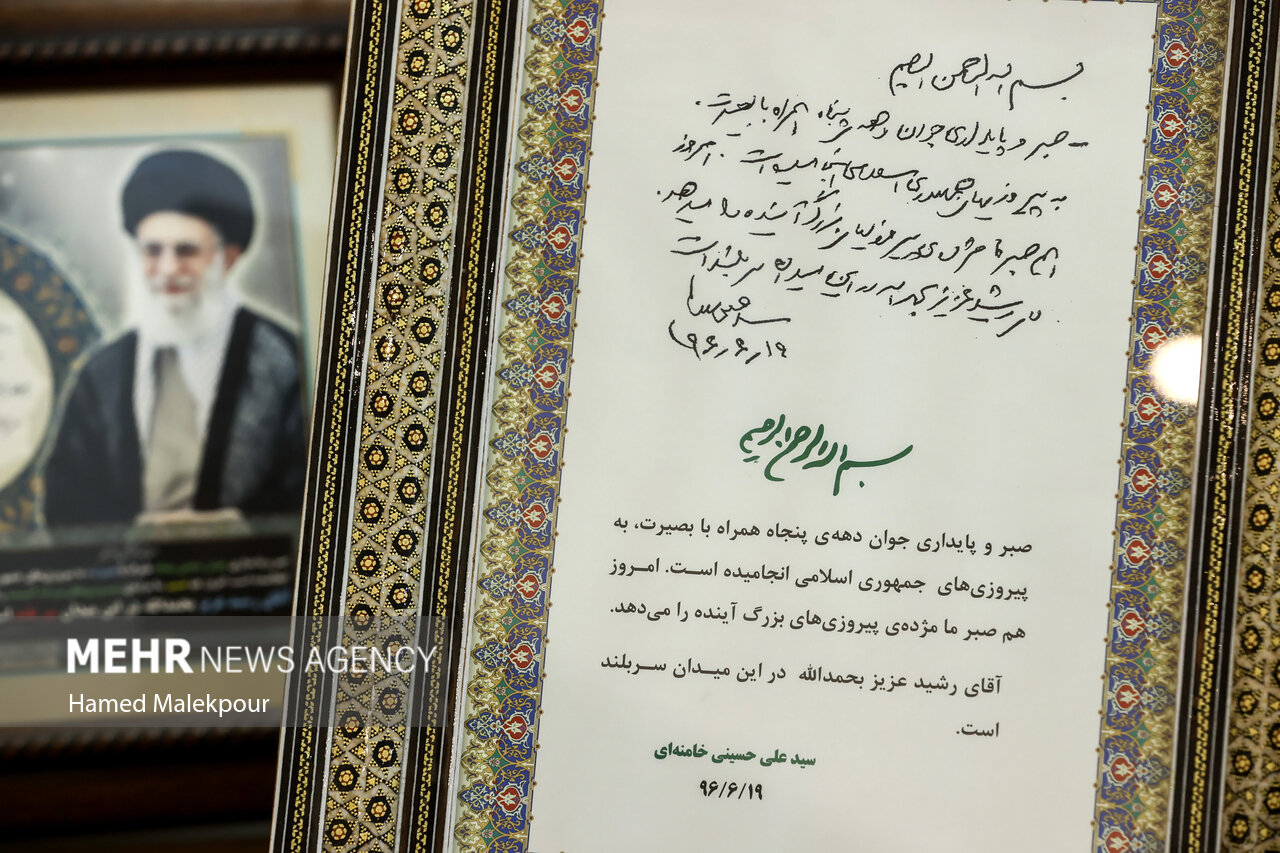 بسم الله الرحمن الرحیم
- صبر و پایداری جوان دهه‌ی پنجاه همراه با بصیرت،
به پیروزیهای جمهوری اسلامی انجامیده است. امروز
هم صبر ما مژده‌ی پیروزیهای بزرگ آینده را میدهد.
آقای رشید عزیز بحمدالله در این میدان سربلند است
سید علی خامنه‌ای
۹۶/۶/۱۹
بسم الله الرحمن الرحیم
صبر و پایداری جوان دهه‌ی پنجاه همراه با بصیرت، به
پیروزی‌های جمهوری اسلامی انجامیده است. امـروز
هم صبر ما مژده‌ی پیروزی‌های بزرگ آینده را می‌دهد.
آقای رشید عزیز بحمدالله در این میـدان سـربلند
است.
سید علی حسینی خامنه‌ای
۹۶/۶/۱۹
MEHR NEWS AGENCY
Hamed Malekpour